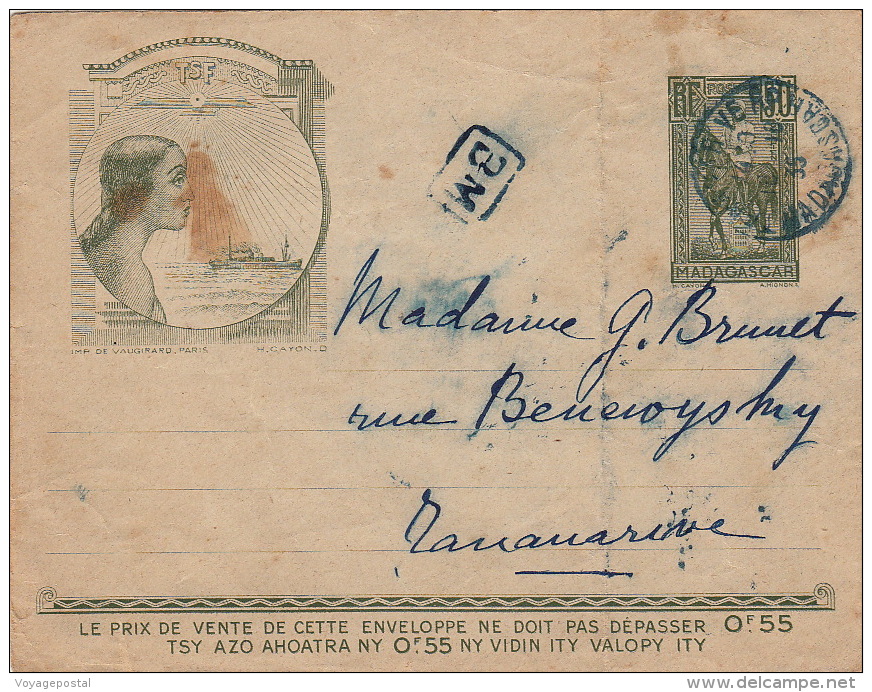 TSF
RF POSTES 50
BM
MADAGASCAR
H. CAYON A. MIGNON
IMP. DE VAUGIRARD. PARIS H. CAYON. D
Madame G. Brunet
rue Benewoysky
Tananarive
LE PRIX DE VENTE DE CETTE ENVELOPPE NE DOIT PAS DÉPASSER 0F.55
TSY AZO AHOATRA NY 0F.55 NY VIDIN ITY VALOPY ITY
Voyagepostal
delcampe.net